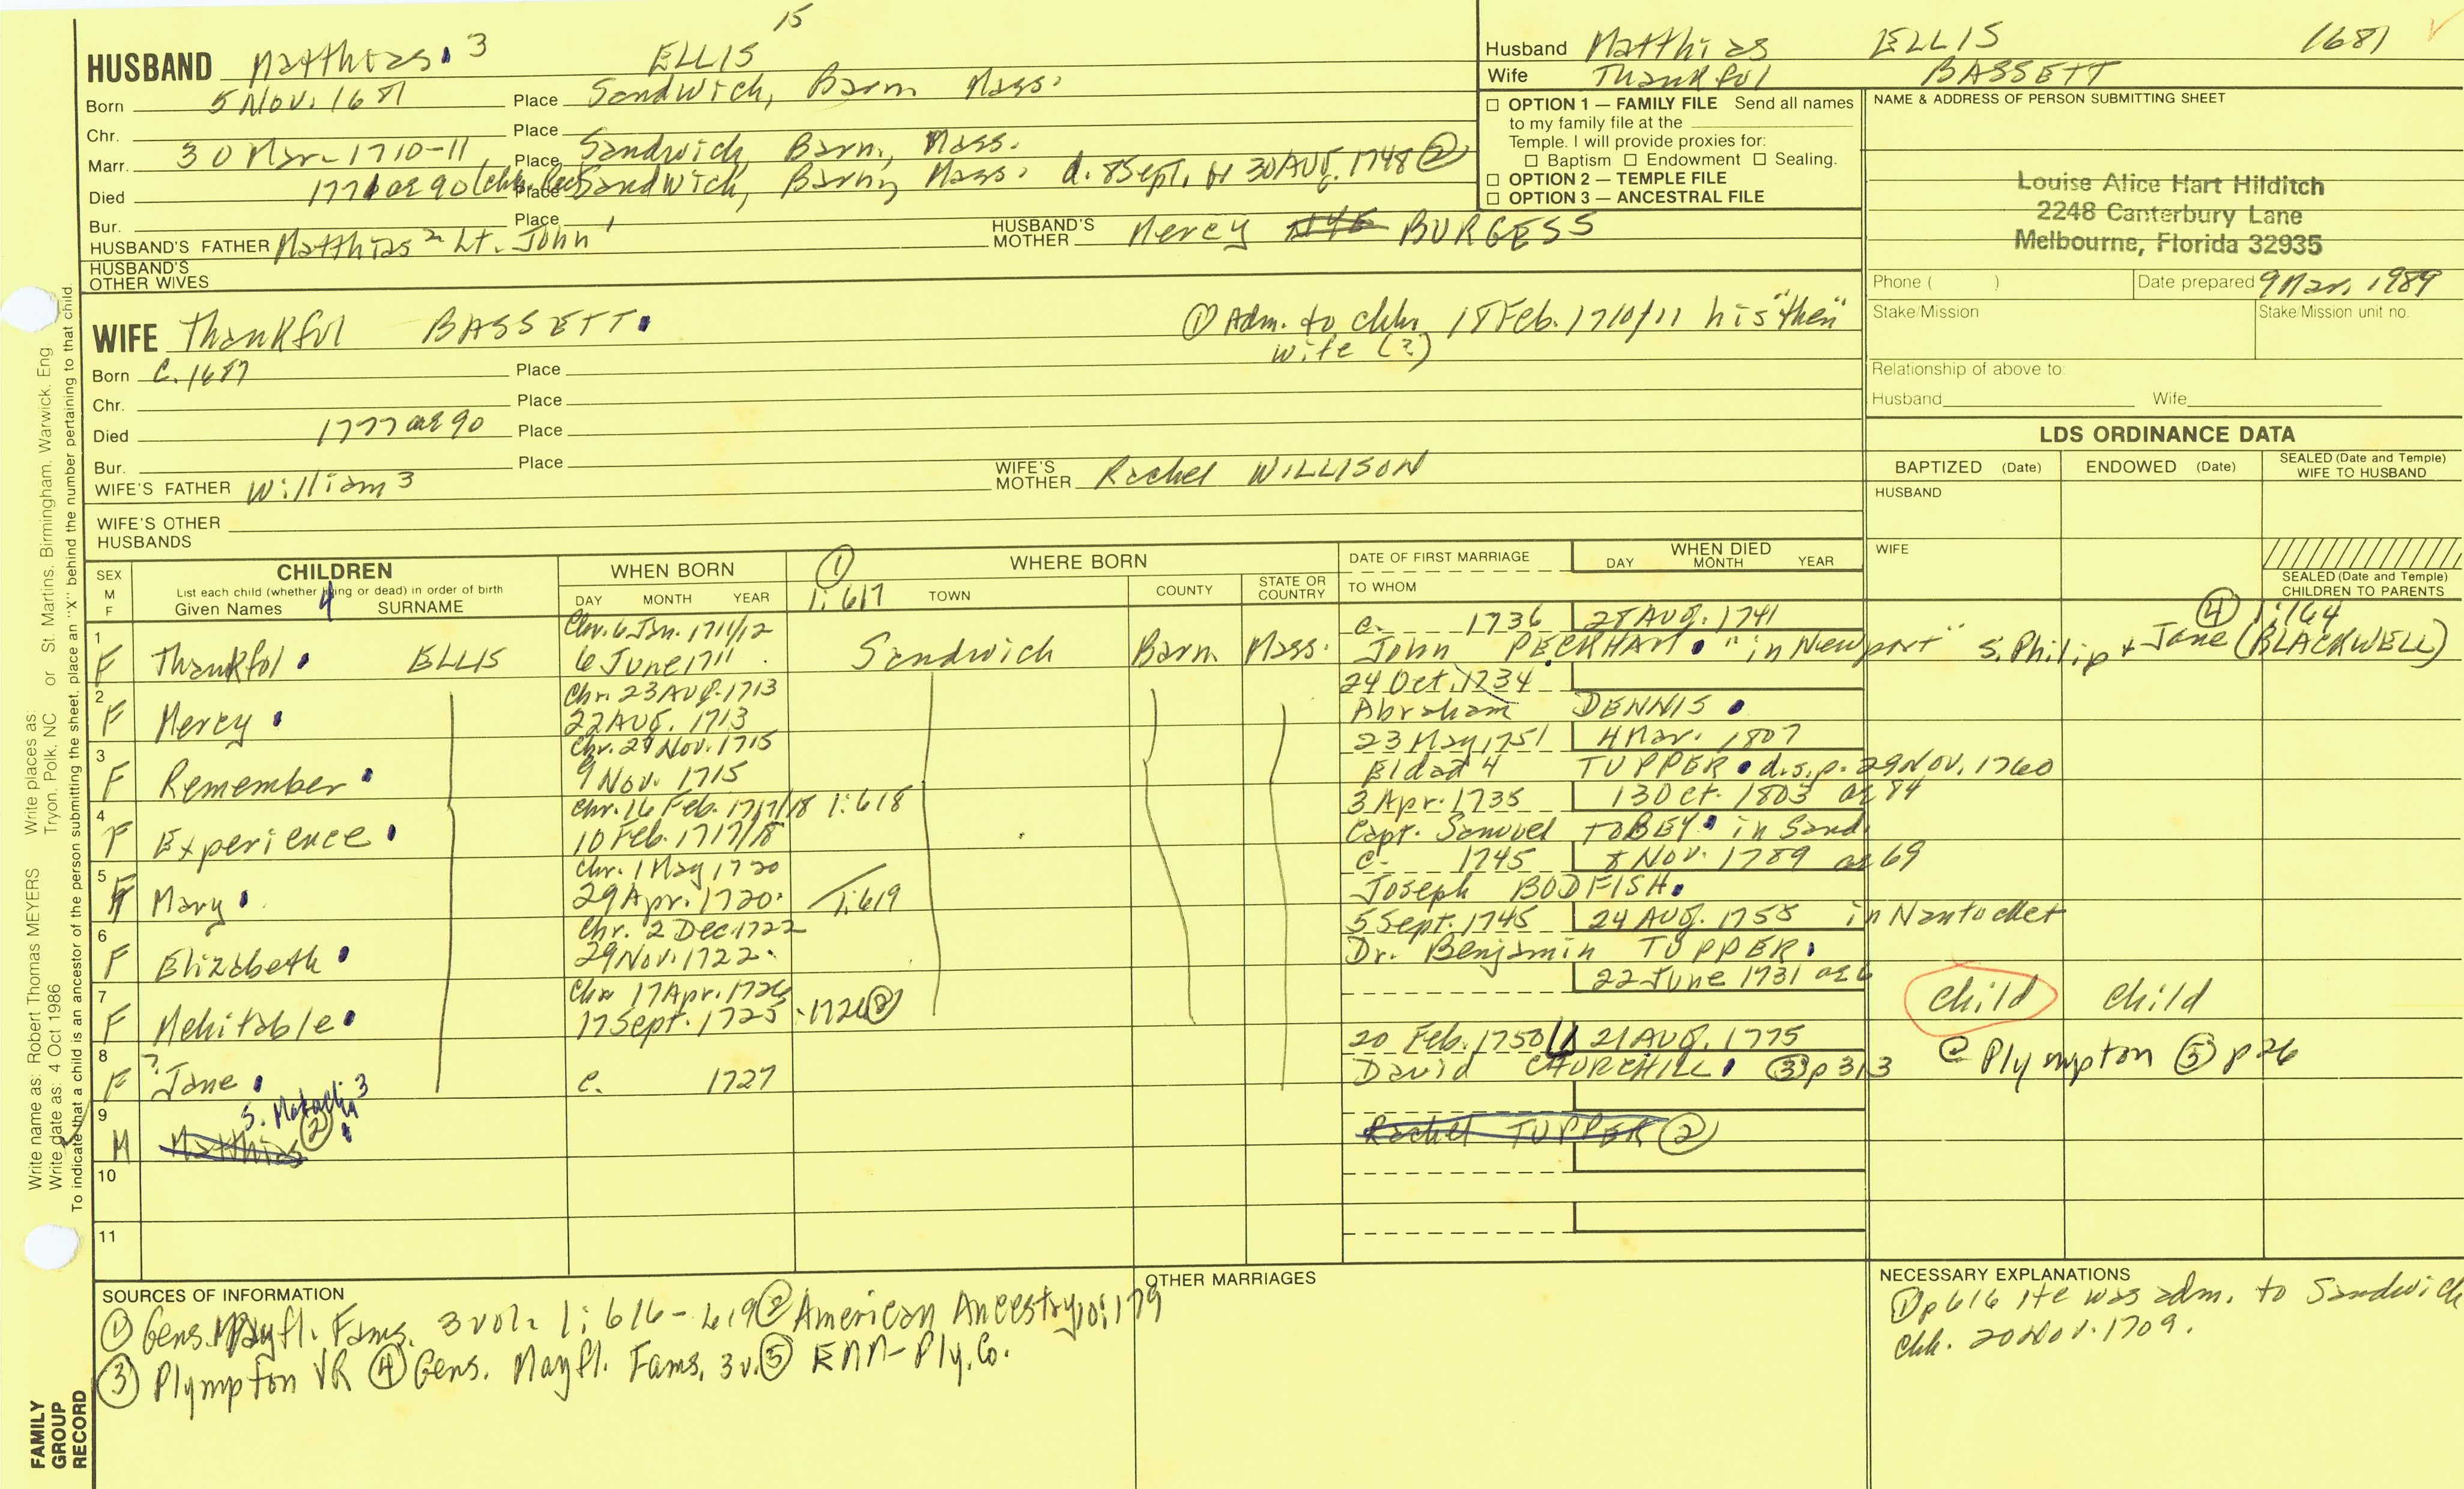 15
HUSBAND Matthias 3 ELLIS
Born 5 Nov. 1681 Place Sandwich, Barn Mass.
Chr. Place
Marr. 30 Mar. 1710-11 Place Sandwich, Barn., Mass.
Died ae 90 Place Sandwich, Barn, Mass. d. 8 Sept. or 30 Aug. 1748 ②
Bur. Place
HUSBAND'S FATHER Matthias 2 Lt. John 1 HUSBAND'S MOTHER Mercy BURGESS
HUSBAND'S OTHER WIVES
WIFE Thankful BASSETT
① Adm. to chh. 18 Feb. 1710/11 his "then"
wife (?)
Born C. 1687 Place
Chr. Place
Died 1777 ae 90 Place
Bur. Place
WIFE'S FATHER William 3 WIFE'S MOTHER Rachel WILLISON
WIFE'S OTHER HUSBANDS
Husband Matthias ELLIS 1681
Wife Thankful BASSETT
☐ OPTION 1 — FAMILY FILE Send all names
to my family file at the
Temple. I will provide proxies for:
☐ Baptism ☐ Endowment ☐ Sealing.
☐ OPTION 2 — TEMPLE FILE
☐ OPTION 3 — ANCESTRAL FILE
NAME & ADDRESS OF PERSON SUBMITTING SHEET
Louise Alice Hart Hilditch
2248 Canterbury Lane
Melbourne, Florida 32935
Phone ( ) Date prepared 9 Mar. 1989
Stake/Mission Stake/Mission unit no.
Relationship of above to:
Husband Wife
LDS ORDINANCE DATA
BAPTIZED (Date) ENDOWED (Date) SEALED (Date and Temple) WIFE TO HUSBAND
HUSBAND
WIFE
SEALED (Date and Temple) CHILDREN TO PARENTS
SEX M F
CHILDREN
List each child (whether living or dead) in order of birth
Given Names 4 SURNAME
WHEN BORN
DAY MONTH YEAR
① 1:617
WHERE BORN
TOWN COUNTY STATE OR COUNTRY
DATE OF FIRST MARRIAGE
TO WHOM
WHEN DIED
DAY MONTH YEAR
1 Chr. 6 Jan. 1711/12 c. 1736 28 Aug. 1741 ④ 1:164
F Thankful ELLIS 6 June 1711 Sandwich Barn. Mass. John PECKHAM "in Newport" S. Philip + Jane (BLACKWELL)
2 Chr. 23 Aug. 1713 24 Oct. 1734
F Mercy 22 Aug. 1713 Abraham DENNIS
3 Chr. 27 Nov. 1715 23 May 1751 4 Mar. 1807
F Remember 9 Nov. 1715 Eldad 4 TUPPER d.s.p. 29 Nov. 1760
4 Chr. 16 Feb. 1717/18 1:618 3 Apr. 1735 13 Oct. 1803 ae 84
F Experience 10 Feb. 1717/18 Capt. Samuel TOBEY in Sand.
5 Chr. 1 May 1720 c. 1745 8 Nov. 1789 ae 69
F Mary 29 Apr. 1720 1:619 Joseph BODFISH
6 Chr. 2 Dec. 1722 5 Sept. 1745 24 Aug. 1758 in Nantucket
F Elizabeth 29 Nov. 1722 Dr. Benjamin TUPPER
7 Chr 17 Apr. 1726 22 June 1731 ae 6
F Mehitable 17 Sept. 1725 - 1726 ② child child
8 20 Feb. 1750/1 21 Aug. 1775
F ? Jane c. 1727 David CHURCHILL ③ p 313 @ Plympton ⑤ p 26
9 S. Malachi 3
M Matthias ② Rachel TUPPER ②
10
11
SOURCES OF INFORMATION
① Gens. Mayfl. Fams. 3 vol. 1: 616-619 ② American Ancestry 10:179
③ Plympton VR ④ Gens. Mayfl. Fams. 3v. ⑤ EMM-Ply. Co.
OTHER MARRIAGES
NECESSARY EXPLANATIONS
① p 616 He was adm. to Sandwich
chh. 20 Nov. 1709.
Write name as: Robert Thomas MEYERS Write places as: Tryon, Polk, NC or St. Martins, Birmingham, Warwick, Eng
Write date as: 4 Oct 1986
To indicate that a child is an ancestor of the person submitting the sheet, place an "X" behind the number pertaining to that child
FAMILY
GROUP
RECORD